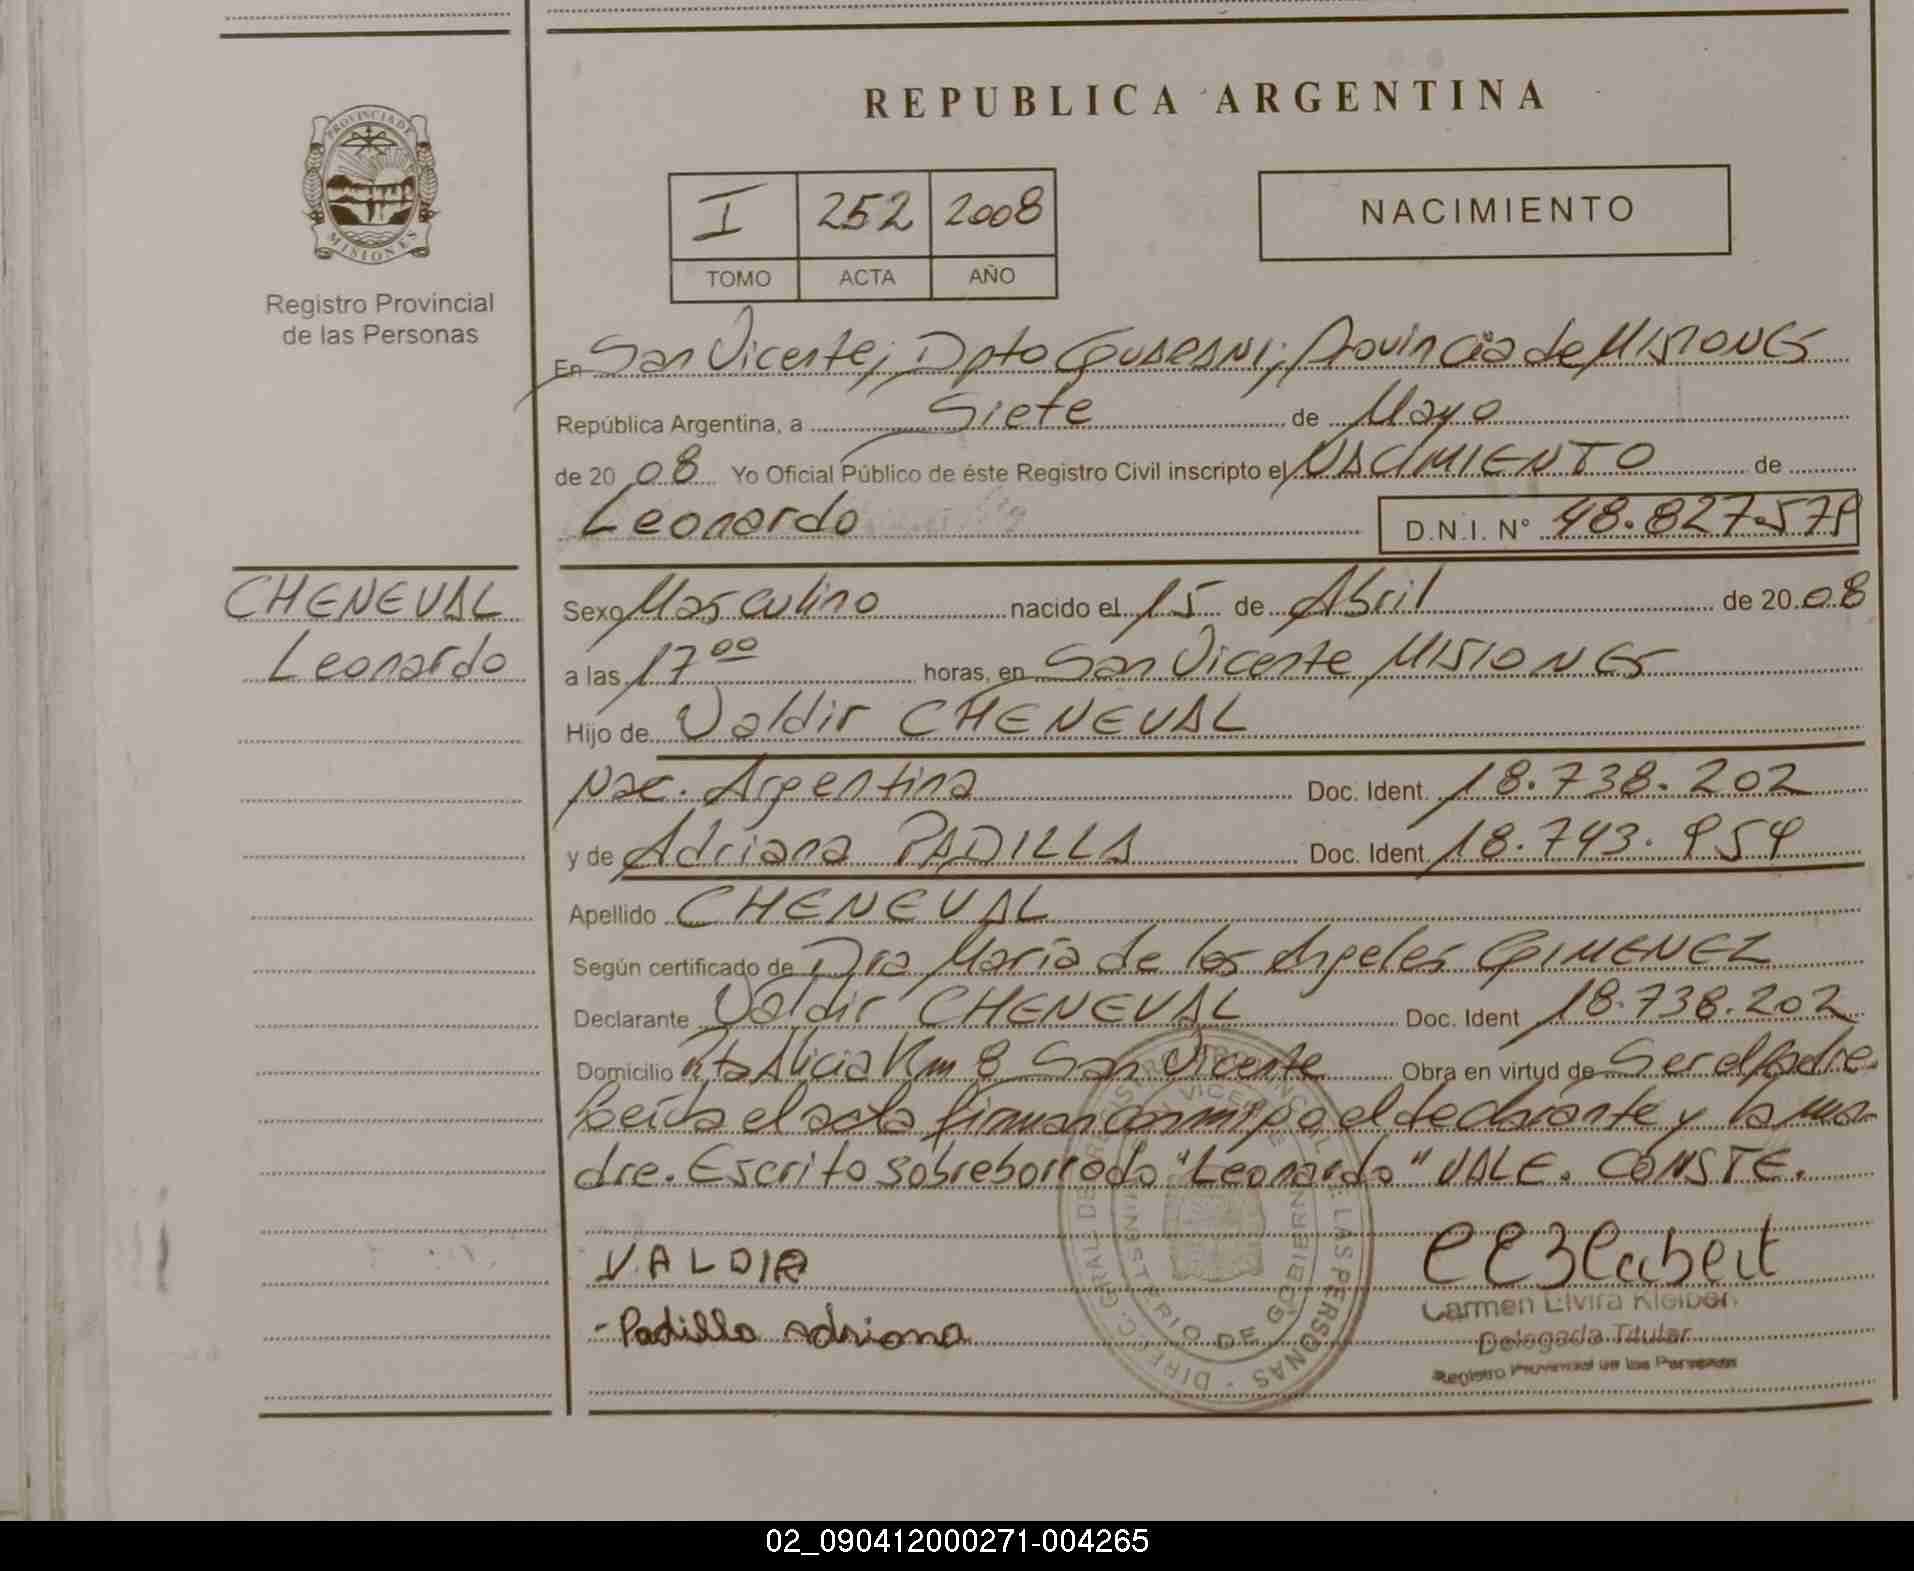 REPUBLICA ARGENTINA
PROVINCIA DE
MISIONES
Registro Provincial
de las Personas
I 252 2008
TOMO ACTA AÑO
NACIMIENTO
En San Vicente; Dpto GUARANI; Provincia de MISIONES
República Argentina, a Siete de Mayo
de 2008 Yo Oficial Público de éste Registro Civil inscripto el NACIMIENTO de
Leonardo D.N.I. Nº 48.827.579
CHENEVAL
Leonardo
Sexo Masculino nacido el 15 de Abril de 2008
a las 17 00 horas, en San Vicente MISIONES
Hijo de Valdir CHENEVAL
Nac. Argentina Doc. Ident. 18.738.202
y de Adriana PADILLA Doc. Ident 18.743.954
Apellido CHENEVAL
Según certificado de Dra María de los Angeles GIMENEZ
Declarante Valdir CHENEVAL Doc. Ident 18.738.202
Domicilio Pta Alicia Km 8 San Vicente Obra en virtud de Ser el Padre.
Leída el acta firman conmigo el declarante y la ma-
dre. Escrito sobreborrado "Leonardo" VALE. CONSTE.
VALDIR
- Padilla Adriana
Carmen Elvira
Delegada Titular
Registro Provincial de las Personas
02_090412000271-004265